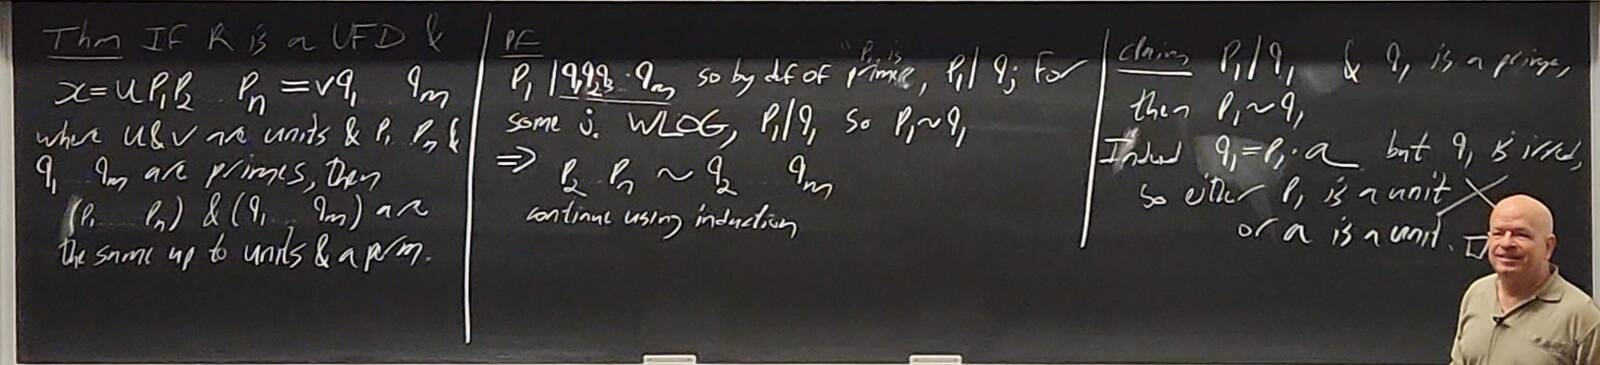 Thm IF R is a UFD &
x = u P₁P₂ Pₙ = v q₁ qₘ
where u & v are units & P₁ Pₙ &
q₁ qₘ are primes, then
(P₁ ... Pₙ) & (q₁ ... qₘ) are
the same up to units & a perm.
PF
"P₁ is
P₁ | q₁q₂q₃ · qₘ so by df of prime, P₁ | qⱼ for
some j. WLOG, P₁ | q₁ so P₁ ~ q₁
⇒ P₂ Pₙ ~ q₂ qₘ
continue using induction
claim P₁ | q₁ & q₁ is a prime,
then P₁ ~ q₁
Indeed q₁ = P₁ · a but q₁ is irred,
so either P₁ is a unit
or a is a unit. □